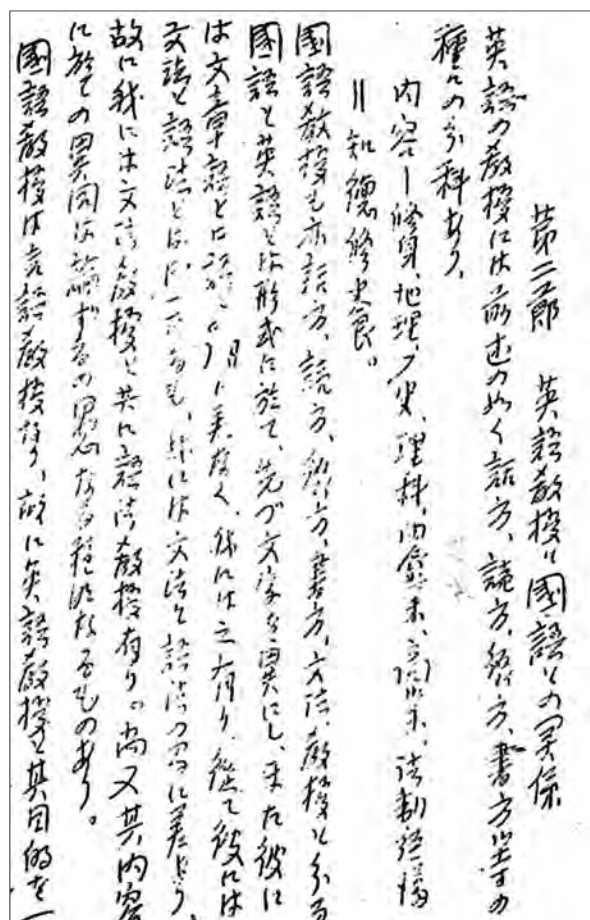 第二節 英語教授と國語との関係
英語の教授には前述の如く話方、読方、綴方、書方等の
種々の分科あり、
内容ー修身、地理、歴史、理科、農業、商業、法制経済
＝知徳修養。
國語教授も亦話方、読方、綴方、書方、文法、教授と分る
國語と英語とは形式に於て、先づ文字を異にし、また彼に
は文章語と口語との別に差なく、我には之有り、従て彼には
文法と語法とは同一なるも、我には文法と語法の間に差あり、
故に我には文法教授と共に語法教授有り。尚又其内容
に於ての異同は論ずるの必なき程明なるものあり。
國語教授は言語教授なり、故に英語教授と其目的を一